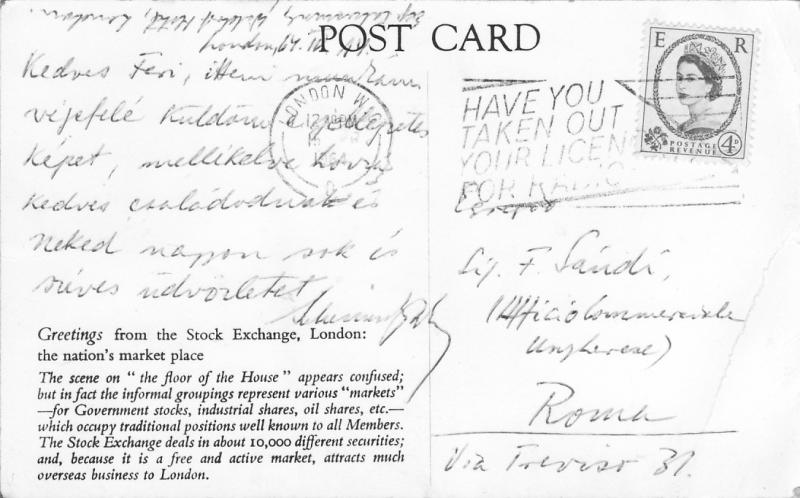 London,
POST CARD
Kedves Feri, itteni munkám
végefelé küldöm e jellegzetes
képet, mellékelve hozzá
kedves családodnak és
Neked nagyon sok és
szíves üdvözletet
Greetings from the Stock Exchange, London:
the nation's market place
The scene on "the floor of the House" appears confused;
but in fact the informal groupings represent various "markets"
—for Government stocks, industrial shares, oil shares, etc.—
which occupy traditional positions well known to all Members.
The Stock Exchange deals in about 10,000 different securities;
and, because it is a free and active market, attracts much
overseas business to London.
LONDON W.C.
HAVE YOU
TAKEN OUT
YOUR LICENCE
FOR RADIO
E R
POSTAGE
REVENUE
4D
Sig. F. Sándi,
(Ufficio Commerciale
Ungherese)
Roma
Via Treviso 31.